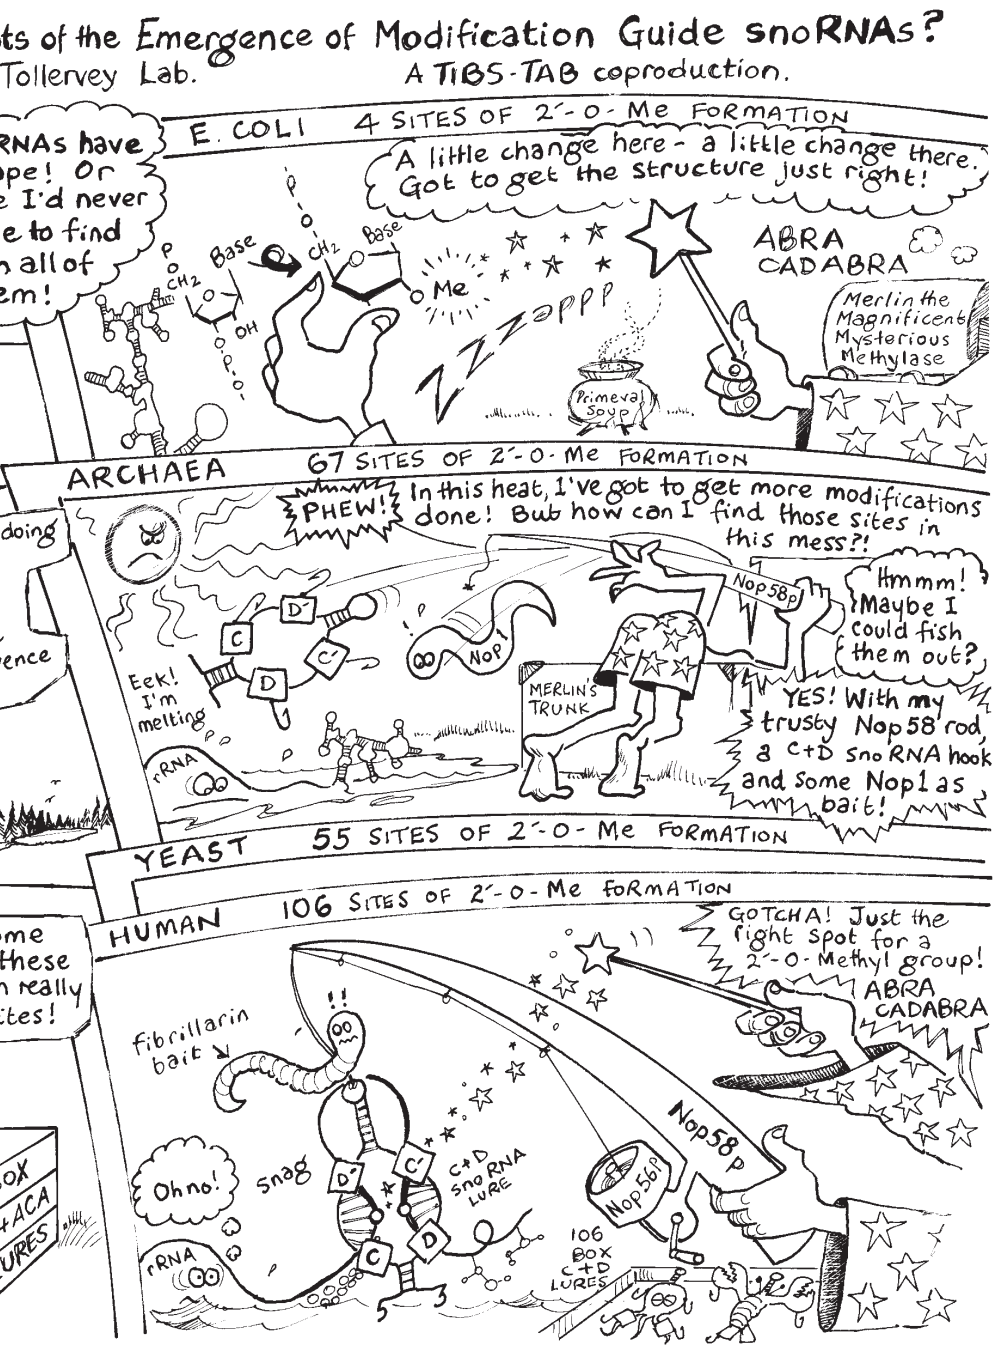 ts of the Emergence of Modification Guide snoRNAs?
Tollervey Lab.
A TIBS-TAB coproduction.
RNAs have
pe! Or
e I'd never
e to find
n all of
em!
E. COLI 4 SITES OF 2'-O-Me FORMATION
A little change here - a little change there.
Got to get the structure just right!
P
O
CH2
Base
OH
O
P
P
O
CH2
Base
O
Me
ZZZeppp
ABRA
CADABRA
Merlin the
Magnificent
Mysterious
Methylase
Primeval
Soup
ARCHAEA 67 SITES OF 2'-O-Me FORMATION
doing
ence
PHEW!
In this heat, I've got to get more modifications
done! But how can I find those sites in
this mess?!
Nop58p
Hmmm!
Maybe I
could fish
them out?
C
D'
C'
D
!
Nop1
Eek!
I'm
melting
rRNA
MERLIN'S
TRUNK
YES! With my
trusty Nop58 rod,
a C+D snoRNA hook
and some Nop1 as
bait!
YEAST 55 SITES OF 2'-O-Me FORMATION
HUMAN 106 SITES OF 2'-O-Me FORMATION
ome
these
n really
ites!
GOTCHA! Just the
right spot for a
2'-O-Methyl group!
ABRA
CADABRA
fibrillarin
bait
!!
Oh no!
snag
D'
C'
C
D
C+D
snoRNA
LURE
rRNA
Nop58p
Nop56p
106
BOX
C+D
LURES
OX
+ACA
URES